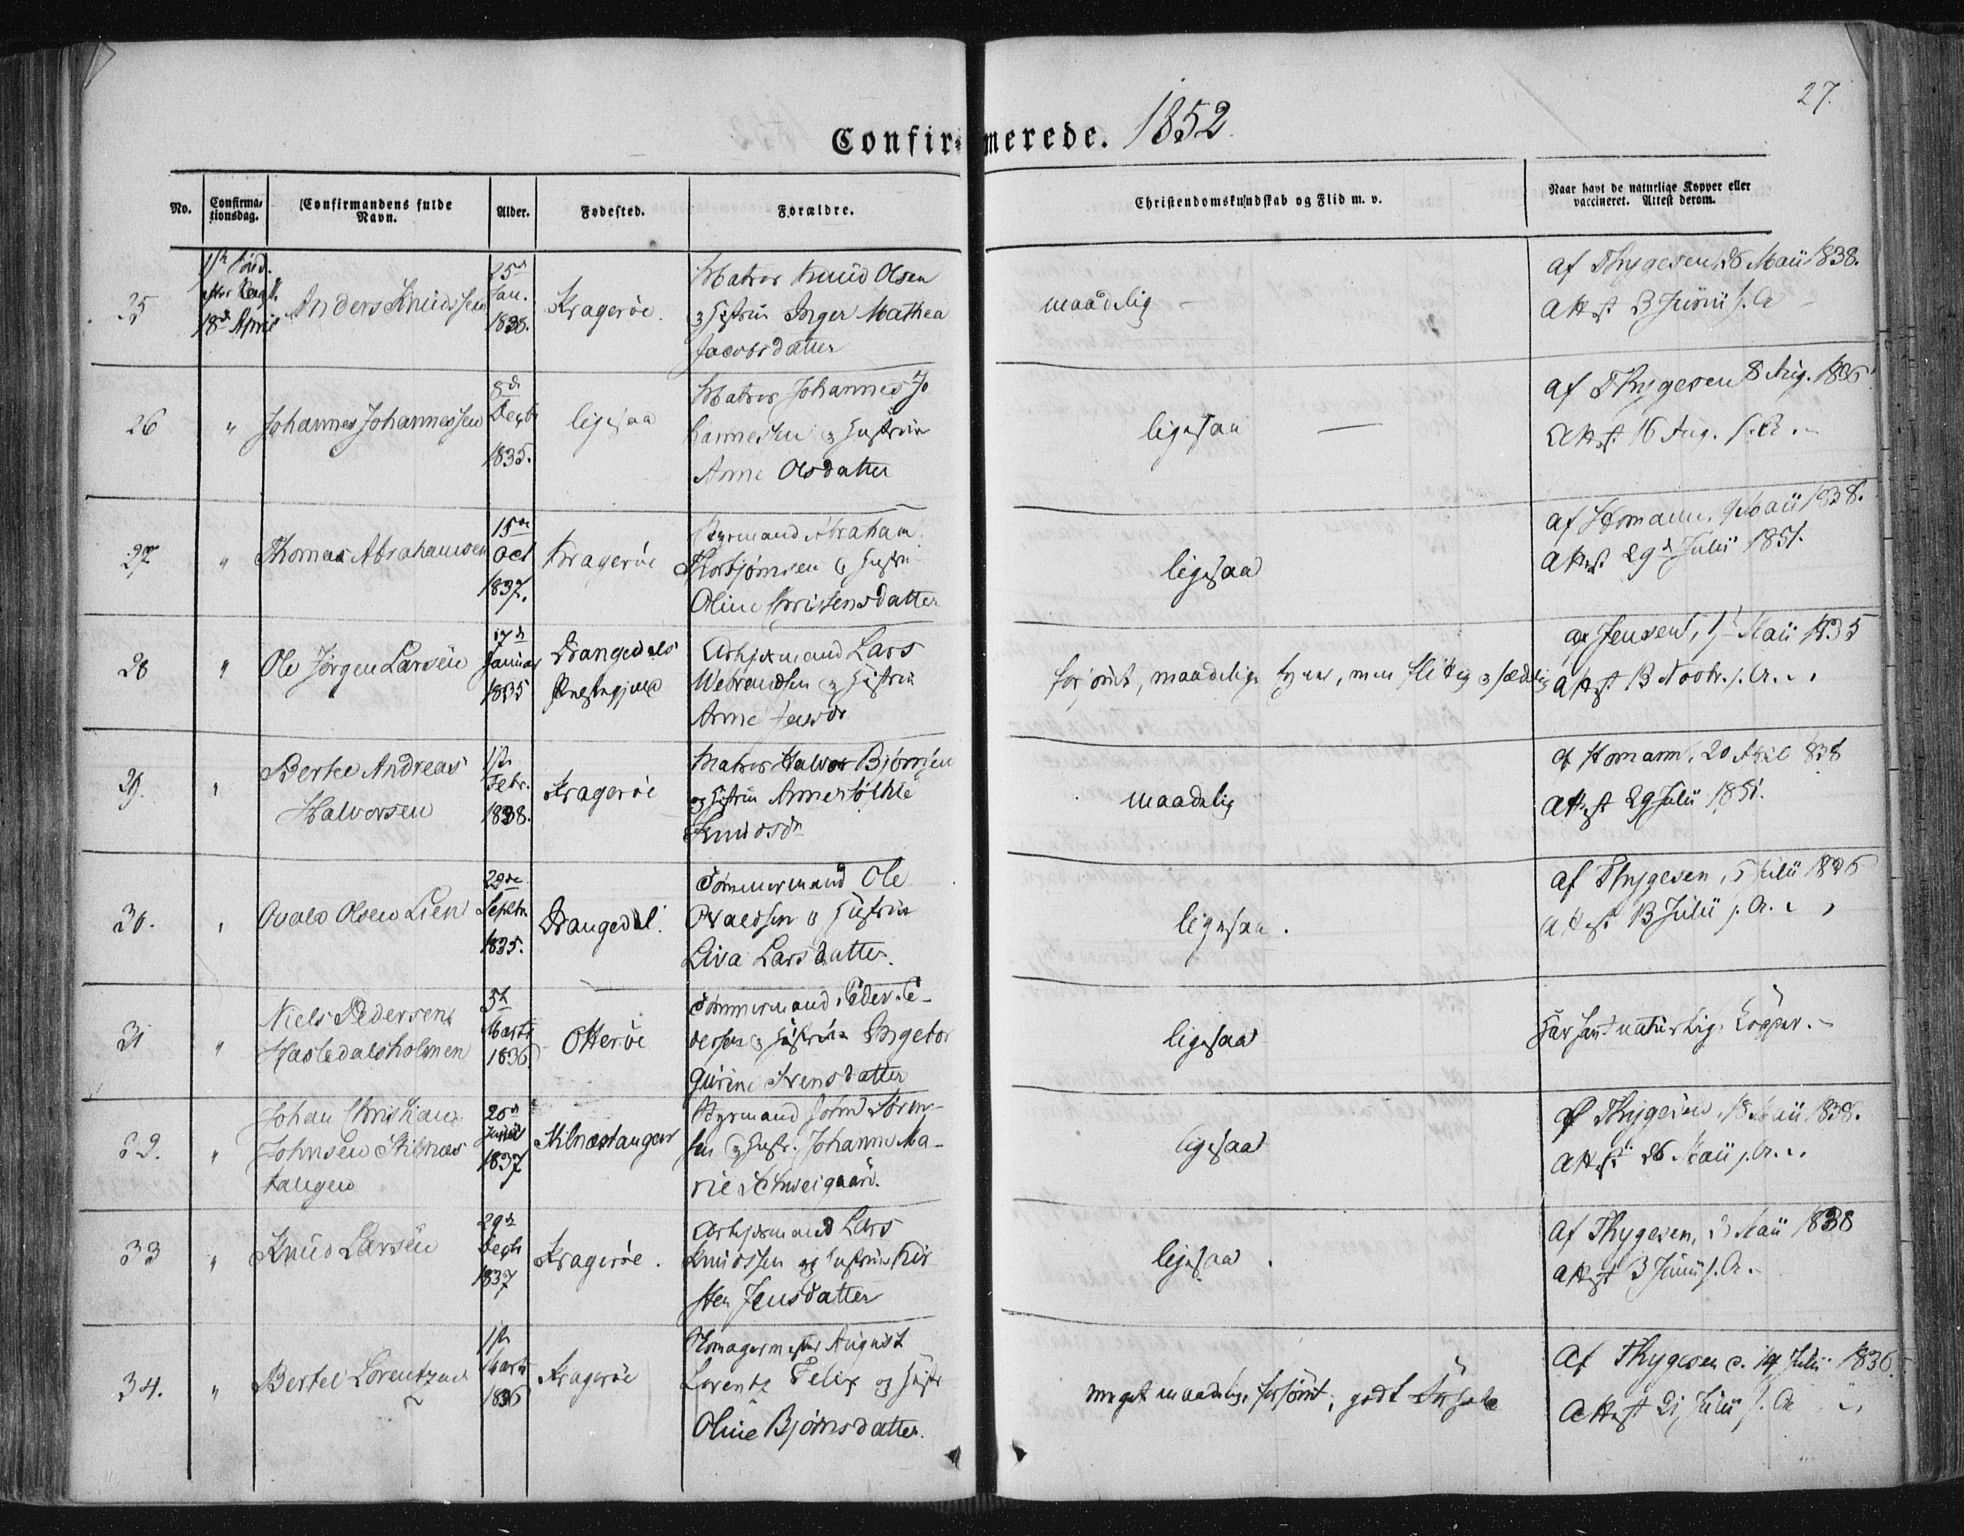 27.
Confirmerede. 1852.
No.
Confirma-
tionsdag.
Confirmandens fulde
Navn.
Alder.
Fødested.
Forældre.
Christendomskundskab og Flid m. v.
Naar havt de naturlige Kopper eller
vaccineret. Attest derom.
25
18de April
Anders Knudsen
25de
Jan.
1838.
Kragerøe.
Matros Knud Olsen
og Hustrue Inger Mathea
Jacobsdatter
maadelig
af Thygesen, 26 Maii 1838.
Attest 3 Junii s. A.
26
"
Johannes Johannessen
8de
Decbr
1835.
ligesaa
Matros Johannes Jo
hannessen og Hustrue
Anne Olsdatter
ligesaa
af Thygesen 8 Aug. 1836
Attest 16 Aug. s. A.
27
"
Thomas Abrahamsen
15de
Oct
1837.
Kragerøe
Styrmand Abraham
Thorbjørnsen og Hustrue
Oline Christensdatter
ligesaa
af Homann, 9 Maii 1838.
Attest 29de Julii 1851.
28
"
Ole Jørgen Larsen
17de
Januar
1835
Drangedals
Præstegjeld
Arbejdsmand Lars
og Hustrue
Anne
forsømt, maadelig, men flittig og sædelig
af Jensen, Maii 1835
Attest 13 Novbr. s. A.
29.
"
Bertel Andreas
Halvorsen
1ste
Febr.
1838.
Kragerøe
Matros Halvor Bjørnsen
og Hustrue Anne
Knudsdr
maadelig
af Homann, 20 April 1838
Attest 29 Julii 1851.
30.
"
Ovald Olsen Lien
29de
Septbr.
1835.
Drangedal.
Tømmermand Ole
Ovaldsen og Hustrue
Liva Larsdatter.
ligesaa.
af Thygesen, 5 Julii 1836
Attest 13 Julii s. A.
31
"
Niels Pedersen
Hasledalsholmen
5te
Marts
1836
Otterøe
Tømmermand Peder Pe-
dersen og Hustrue Ingebor
Gurine Svensdatter
ligesaa
har havt naturlige Kopper.
32.
"
Johan Christian
Johnsen Stilnæs
tangen
1837
Stilnæstangen
Styrmand John Søren-
sen og Hustr. Johanne Ma-
rie Schweigaard.
ligesaa
af Thygesen, 18 Maii 1838.
Attest 26 Maii s. A.
33
"
Knud Larsen
29de
Decbr
1837
Kragerøe.
Arbejdsmand Lars
Knudssen og Hustrue Kir
sten Jensdatter
ligesaa.
af Thygesen, 3 Maii 1838
Attest 3 Junii s. A.
34.
"
Bertel Lorentzen
1ste
Marts
1836
Kragerøe
Skomagermester August
Lorentz Felix og Hustr
Oline Bjørnsdatter.
meget maadelig, forsømt, godt
af Thygesen d. 14 Julii 1836.
Attest 21 Julii s. A.